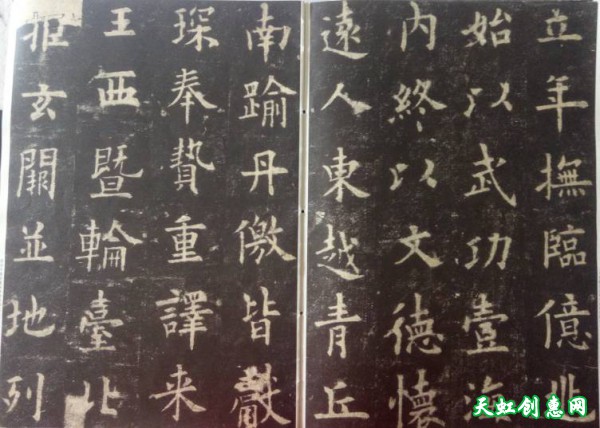 立年撫臨億兆
始以武功壹海
內終以文德懷
遠人東越青丘
南踰丹儌皆獻
琛奉贄重譯来
王西暨輪臺北
拒玄闕並地列
天虹创惠网